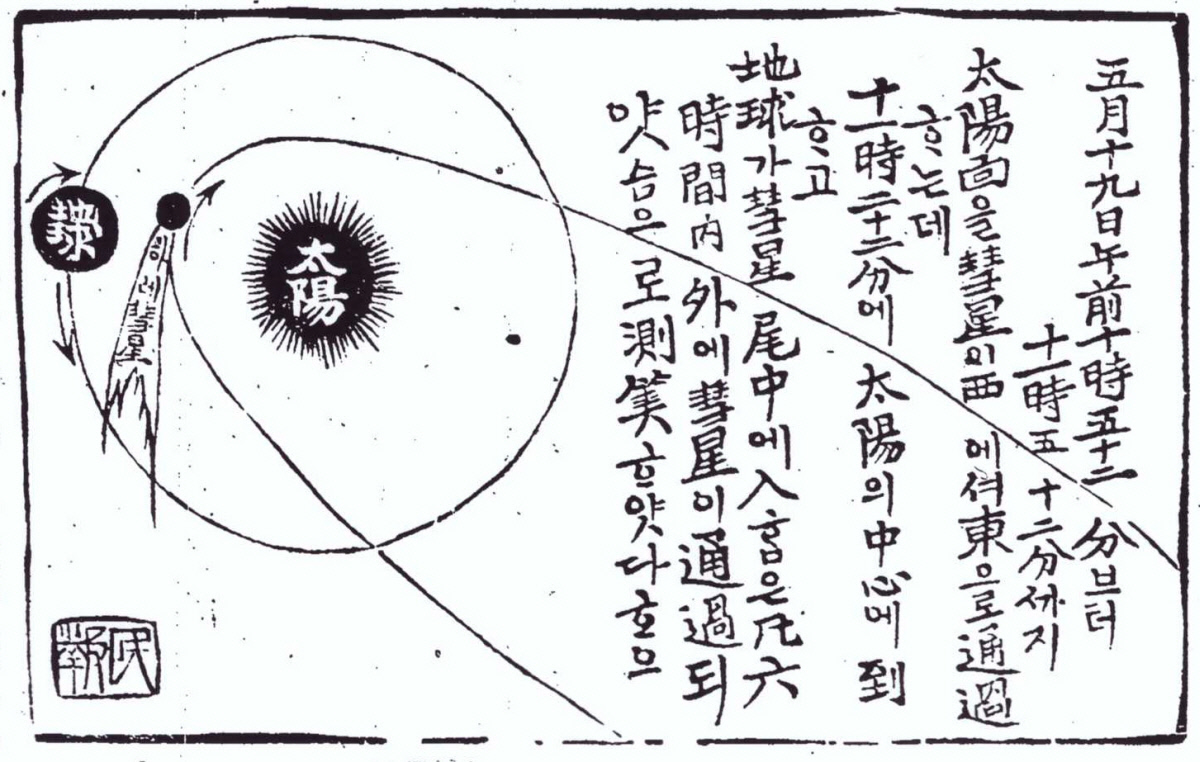 五月十九日午前十時五十二分브터
十一時五十二分ᄭᅡ지
太陽面을彗星이西에셔東으로通過
ᄒᆞ는데
十一時二十二分에太陽의中心에到
ᄒᆞ고
地球가彗星尾中에入홈은凡六
時間內外에彗星이通過되
얏슴으로測筭ᄒᆞ얏다ᄒᆞ오
太陽
彗星
地球